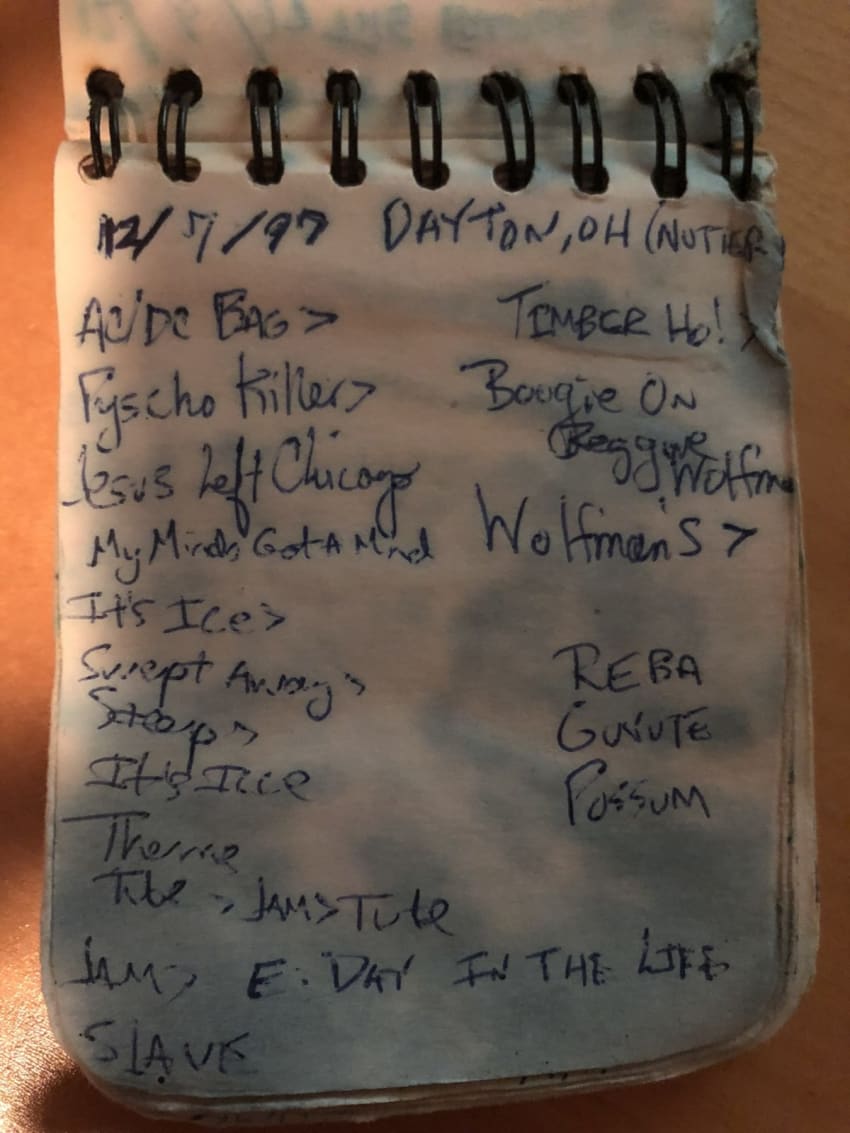 12/7/97 DAYTON, OH (NUTTER
AC/DC BAG >
Pyscho Killer >
Jesus Left Chicago
My Minds Got A Mind
It's Ice >
Swept Away >
Steep >
It's Icce
Theme
Tube > JAM > Tube
JAM >
SLAVE
TIMBER Ho! >
Boogie On
(Reggwe
Wolfm
Wolfman's >
REBA
GUYUTE
POSSUM
E: DAY IN THE LIFE